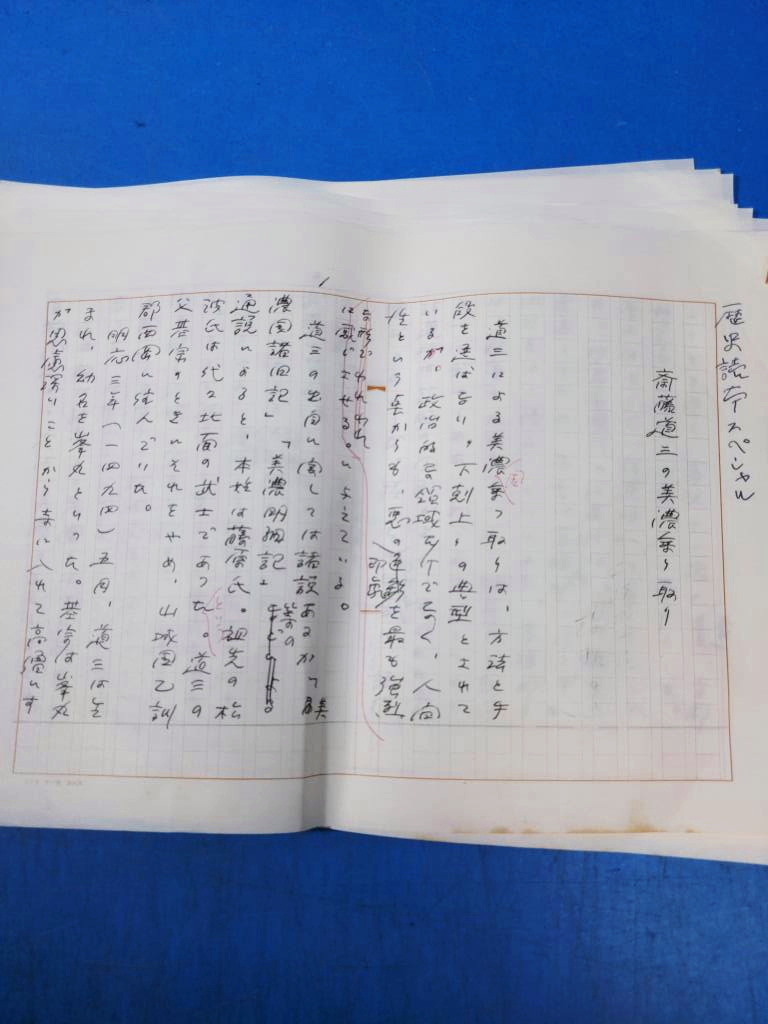 歴史読本スペシャル
斎藤道三の美濃乗り取り
道三による美濃国乗っ取りは、方法と手
段を選ばない、下剋上の典型とされて
いるが、政治的な領域だけでなく、人間
性という点からも、悪の 印象を最も強烈
な形でわれわれ
に感じさせる。
道三の出自に関しては諸説あるが、「美
濃国諸旧記」「美濃明細記」等の
通説によると、本姓は藤原氏。祖先の松
波氏は代々北面の武士であった。道三の
父基宗のときにそれをやめ、山城国乙訓
郡西岡に住んでいた。
明応三年(一四九四)五月、道三は生
まれ、幼名を峯丸といった。基宗は峯丸
が思慮深いことから幸に入れて高僧にす